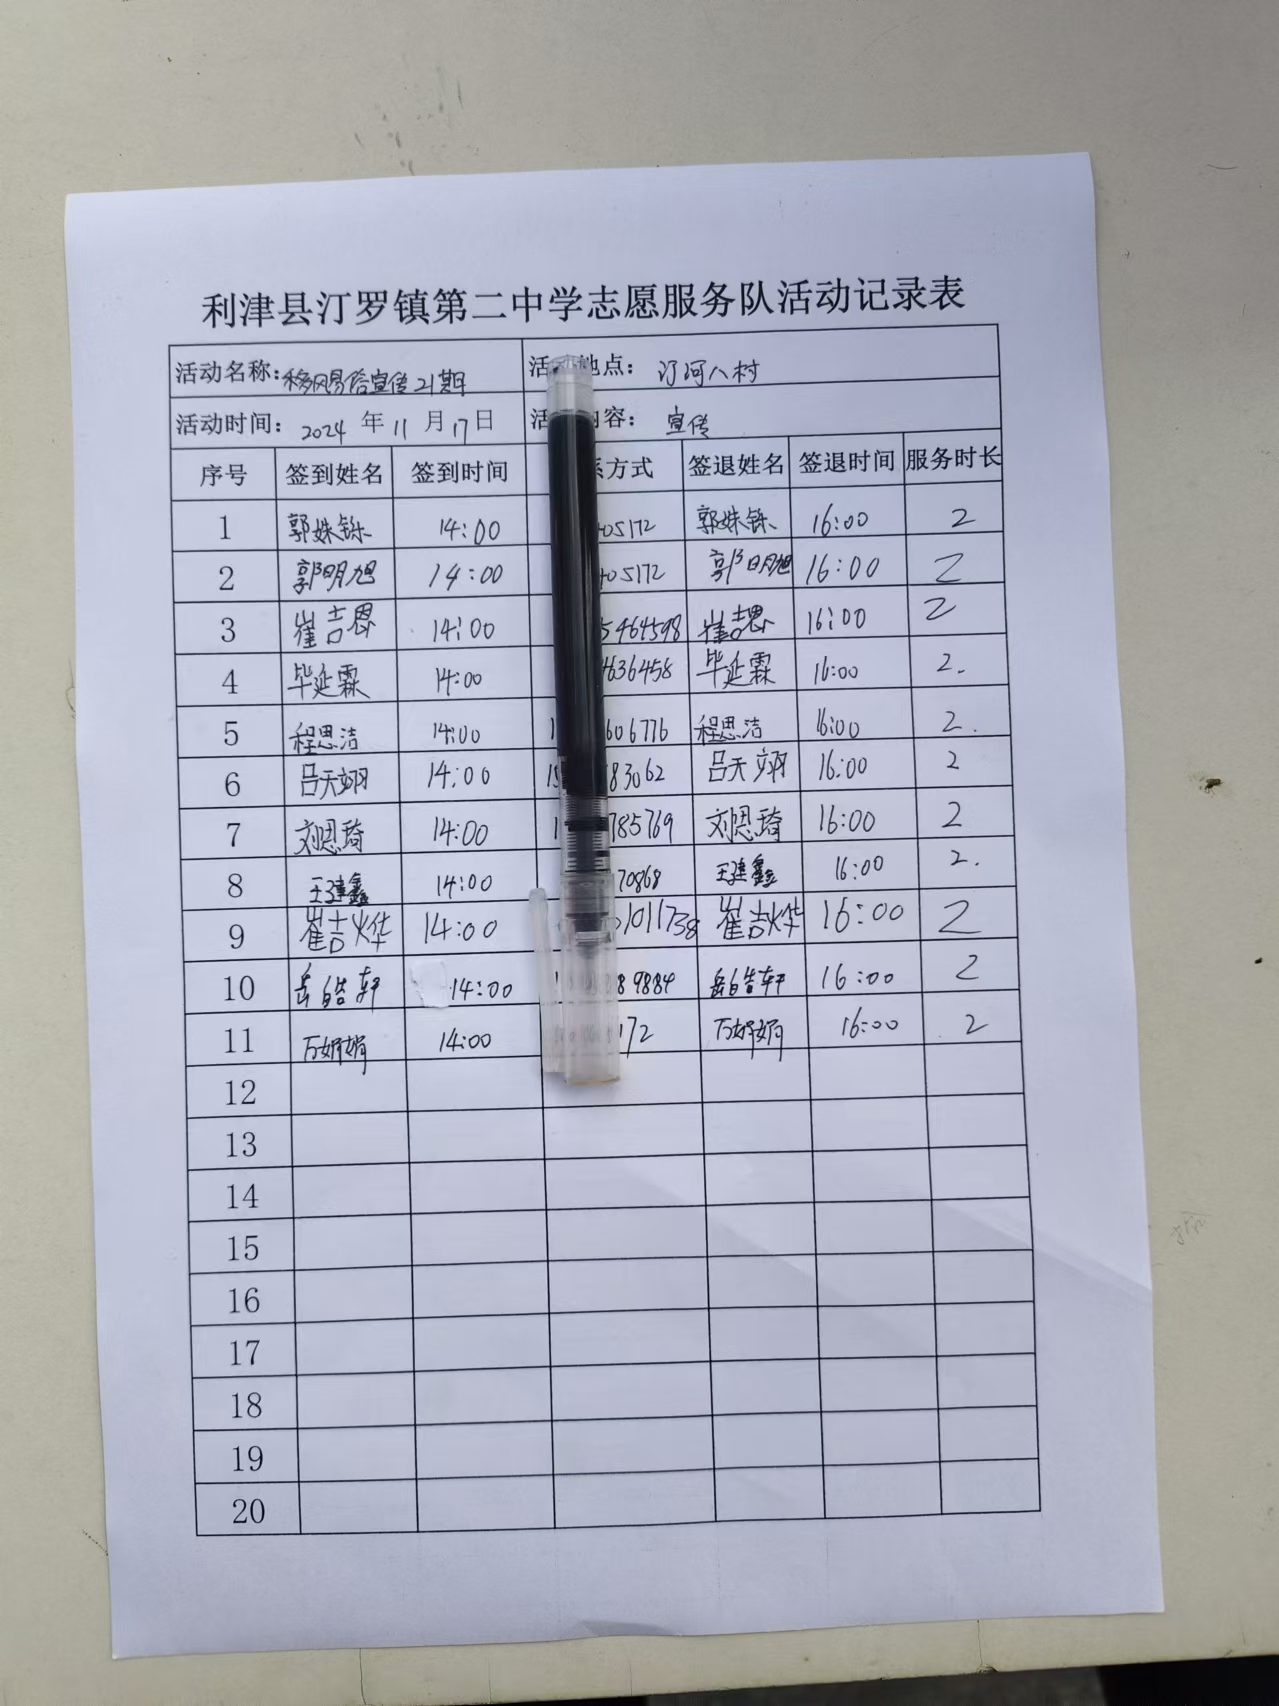 利津县汀罗镇第二中学志愿服务队活动记录表
活动名称:移风易俗宣传21期 活 地点: 汀河八村
活动时间: 2024 年 11 月 17 日 活 内容: 宣传
序号 签到姓名 签到时间 系方式 签退姓名 签退时间 服务时长
1 郭姝铄 14:00 405172 郭姝铄 16:00 2
2 郭明旭 14:00 405172 郭明旭 16:00 2
3 崔吉恩 14:00 5464598 崔吉恩 16:00 2
4 毕延霖 14:00 4636458 毕延霖 16:00 2.
5 程思洁 14:00 1 606776 程思洁 16:00 2.
6 吕天翊 14:00 15 83062 吕天翊 16:00 2
7 刘恩琦 14:00 1 785769 刘恩琦 16:00 2
8 王建鑫 14:00 70868 王建鑫 16:00 2.
9 崔吉烨 14:00 1011738 崔吉烨 16:00 2
10 岳皓轩 14:00 89884 岳皓轩 16:00 2
11 万娟娟 14:00 172 万娟娟 16:00 2
12
13
14
15
16
17
18
19
20